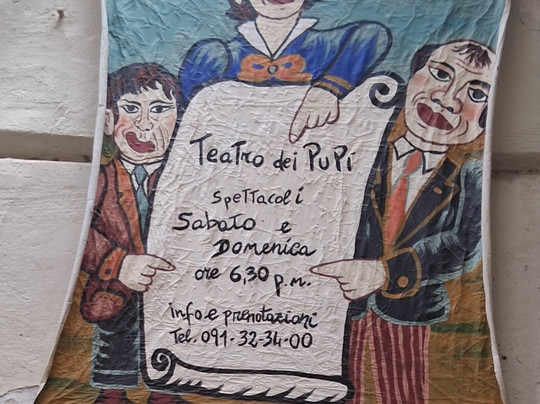 Teatro dei PuPi
spettacoli
Sabato e
Domenica
ore 6,30 p.m.
info e prenotazioni
Tel. 091-32-34-00